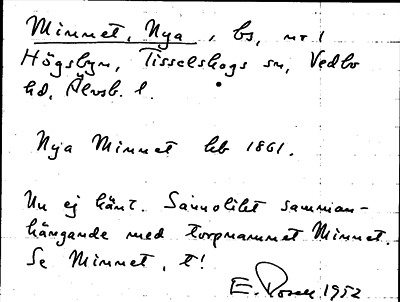 Minnet, Nya, bs, nr 1
Högsbyn, Tisselskogs sn, Vedbo
hd, Älvsb. l.
Nya Minnet hb 1861.
Nu ej känt. Sannolikt samman-
hängande med torpnamnet Minnet.
Se Minnet, t!
E. 1952